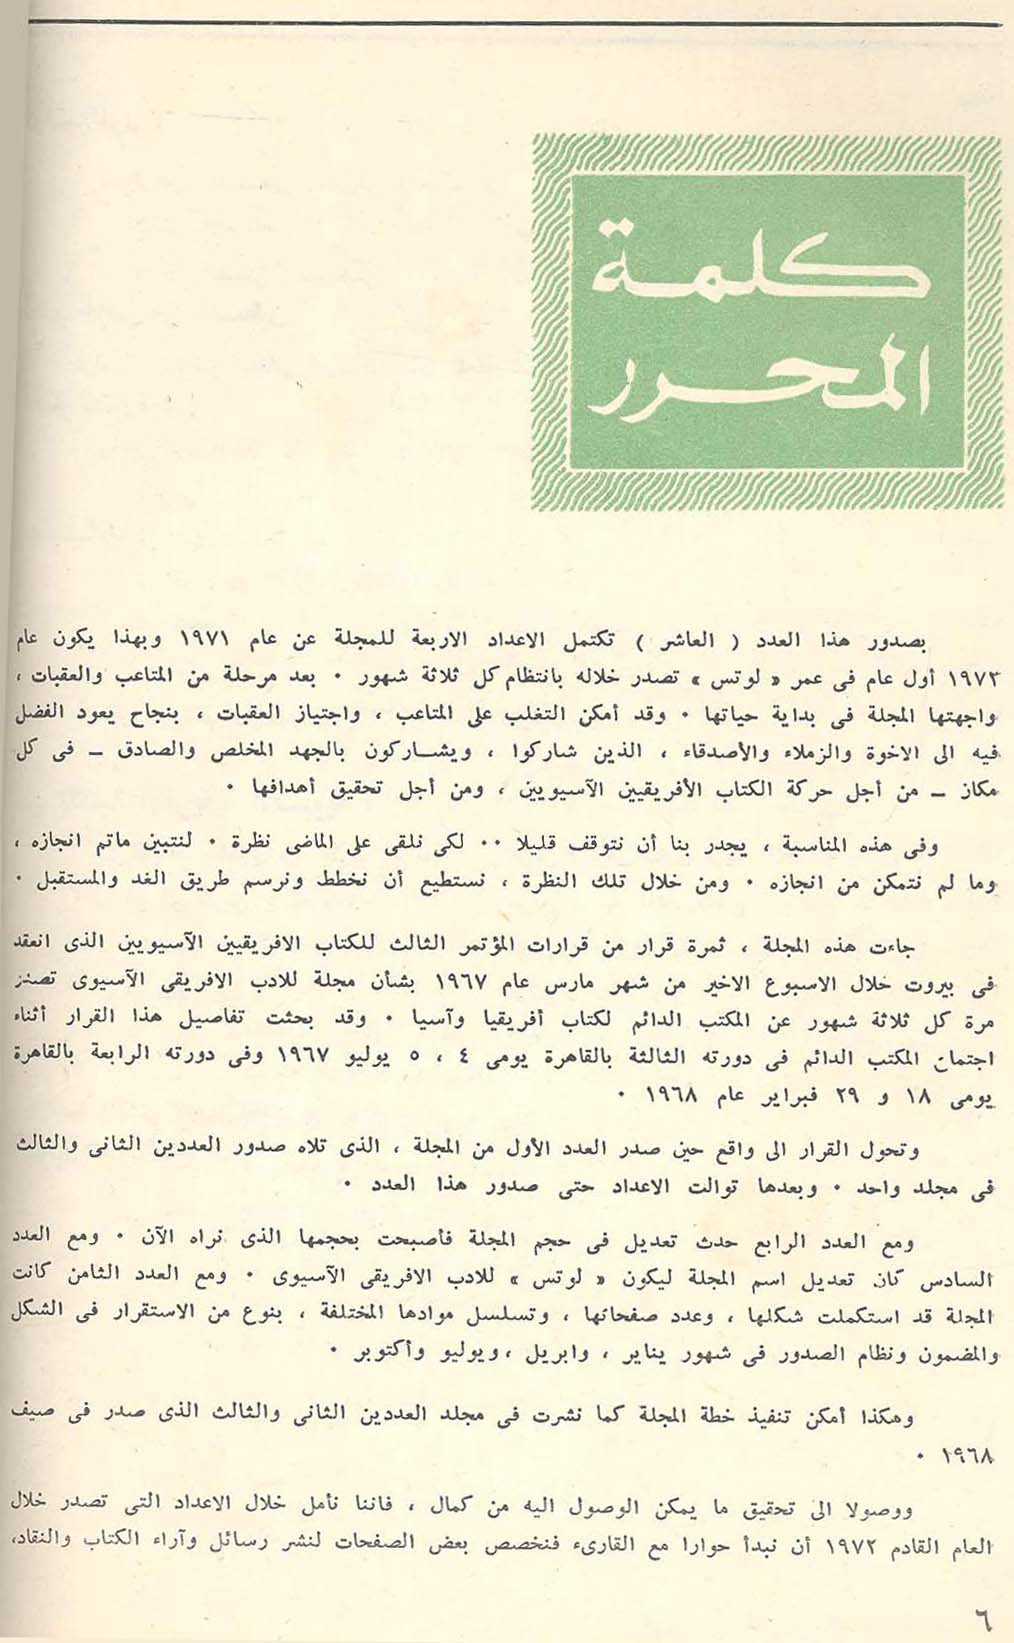 كلمة
المحرر
بصدور هذا العدد ( العاشر ) تكتمل الاعداد الاربعة للمجلة عن عام ١٩٧١ وبهذا يكون عام
١٩٧٢ أول عام فى عمر « لوتس » تصدر خلاله بانتظام كل ثلاثة شهور . بعد مرحلة من المتاعب والعقبات ،
واجهتها المجلة فى بداية حياتها . وقد أمكن التغلب على المتاعب ، واجتياز العقبات ، بنجاح يعود الفضل
فيه الى الاخوة والزملاء والأصدقاء ، الذين شاركوا ، ويشاركون بالجهد المخلص والصادق – فى كل
مكان – من أجل حركة الكتاب الأفريقيين الآسيويين ، ومن أجل تحقيق أهدافها .
وفى هذه المناسبة ، يجدر بنا أن نتوقف قليلا .. لكى نلقى على الماضى نظرة . لنتبين ماتم انجازه ،
وما لم نتمكن من انجازه . ومن خلال تلك النظرة ، نستطيع أن نخطط ونرسم طريق الغد والمستقبل .
جاءت هذه المجلة ، ثمرة قرار من قرارات المؤتمر الثالث للكتاب الافريقيين الآسيويين الذى انعقد
فى بيروت خلال الاسبوع الاخير من شهر مارس عام ١٩٦٧ بشأن مجلة للادب الافريقى الآسيوى تصدر
مرة كل ثلاثة شهور عن المكتب الدائم لكتاب أفريقيا وآسيا . وقد بحثت تفاصيل هذا القرار أثناء
اجتماع المكتب الدائم فى دورته الثالثة بالقاهرة يومى ٤ ، ٥ يوليو ١٩٦٧ وفى دورته الرابعة بالقاهرة
يومى ١٨ و ٢٩ فبراير عام ١٩٦٨ .
وتحول القرار الى واقع حين صدر العدد الأول من المجلة ، الذى تلاه صدور العددين الثانى والثالث
فى مجلد واحد . وبعدها توالت الاعداد حتى صدور هذا العدد .
ومع العدد الرابع حدث تعديل فى حجم المجلة فأصبحت بحجمها الذى نراه الآن . ومع العدد
السادس كان تعديل اسم المجلة ليكون « لوتس » للادب الافريقى الآسيوى . ومع العدد الثامن كانت
المجلة قد استكملت شكلها ، وعدد صفحاتها ، وتسلسل موادها المختلفة ، بنوع من الاستقرار فى الشكل
والمضمون ونظام الصدور فى شهور يناير ، وابريل ، ويوليو وأكتوبر .
وهكذا أمكن تنفيذ خطة المجلة كما نشرت فى مجلد العددين الثانى والثالث الذى صدر فى صيف
١٩٦٨ .
ووصولا الى تحقيق ما يمكن الوصول اليه من كمال ، فاننا نأمل خلال الاعداد التى تصدر خلال
العام القادم ١٩٧٢ أن نبدأ حوارا مع القارىء فنخصص بعض الصفحات لنشر رسائل وآراء الكتاب والنقاد،
٦